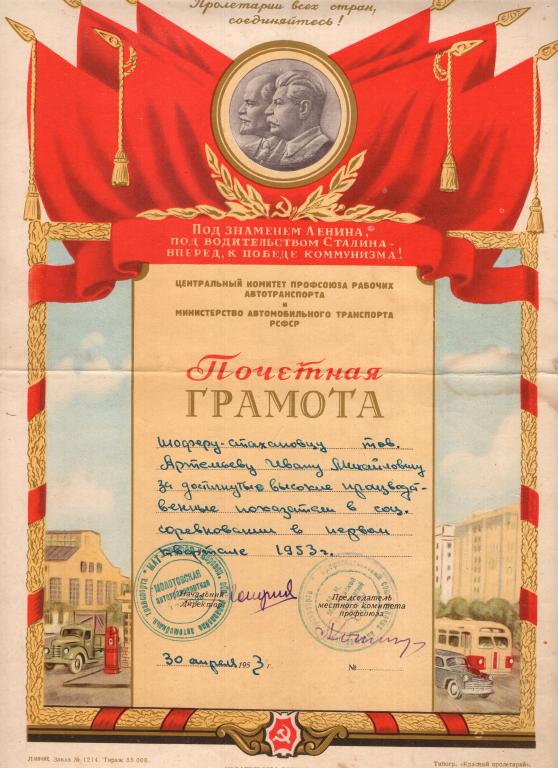 Пролетарии всех стран,
соединяйтесь!
Под знаменем Ленина,
под водительством Сталина-
вперед, к победе коммунизма!
ЦЕНТРАЛЬНЫЙ КОМИТЕТ ПРОФСОЮЗА РАБОЧИХ
АВТОТРАНСПОРТА
и
МИНИСТЕРСТВО АВТОМОБИЛЬНОГО ТРАНСПОРТА
РСФСР
Почетная
ГРАМОТА
шоферу-стахановцу тов.
Артемьеву Ивану Михайловичу
за достигнутые высокие производст-
венные показатели в соц.
соревновании в первом
квартале 1953 г.
МОЛОТОВСКАЯ
автотранспортная
Начальник
Директор
Председатель
местного комитета
профсоюза
30 апреля 1953 г.
№
Заказ № 1214. Тираж 55 000.
Типогр. «Красный пролетарий».